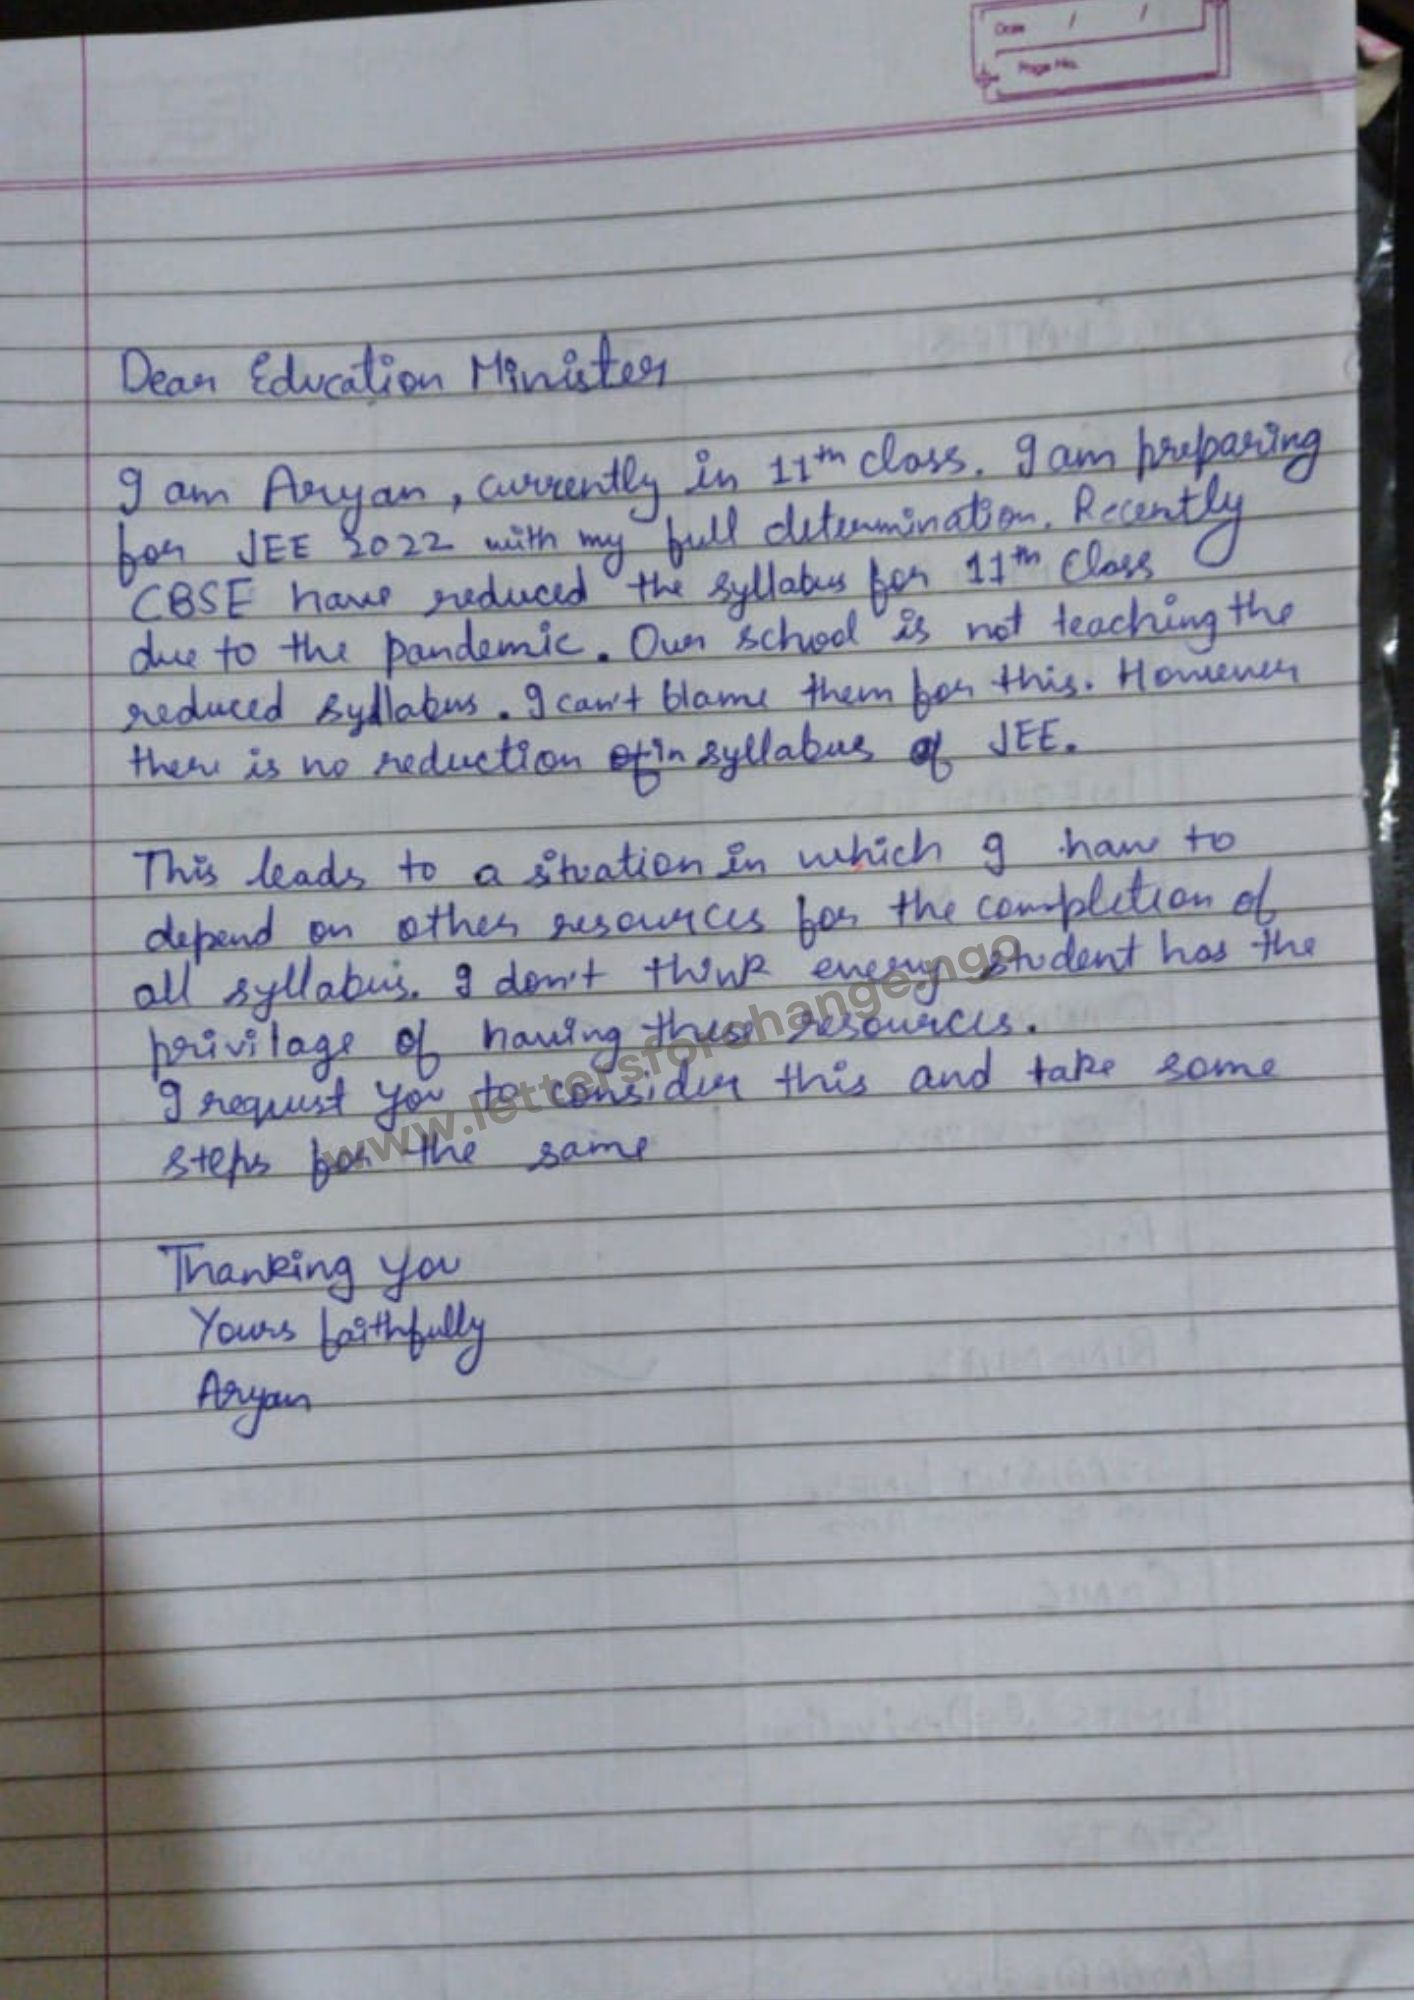 Date / /
Page No.
Dear Education Minister
I am Aryan, currently in 11th class. I am preparing
for JEE 2022 with my full determination. Recently
CBSE have reduced the syllabus for 11th Class
due to the pandemic. Our school is not teaching the
reduced syllabus. I can't blame them for this. However
there is no reduction of in syllabus of JEE.
This leads to a situation in which I have to
depend on other resources for the completion of
all syllabus. I don't think every student has the
privilage of having these resources.
I request you to consider this and take some
steps for the same
Thanking you
Yours faithfully
Aryan
www.lettersforchange.ngo